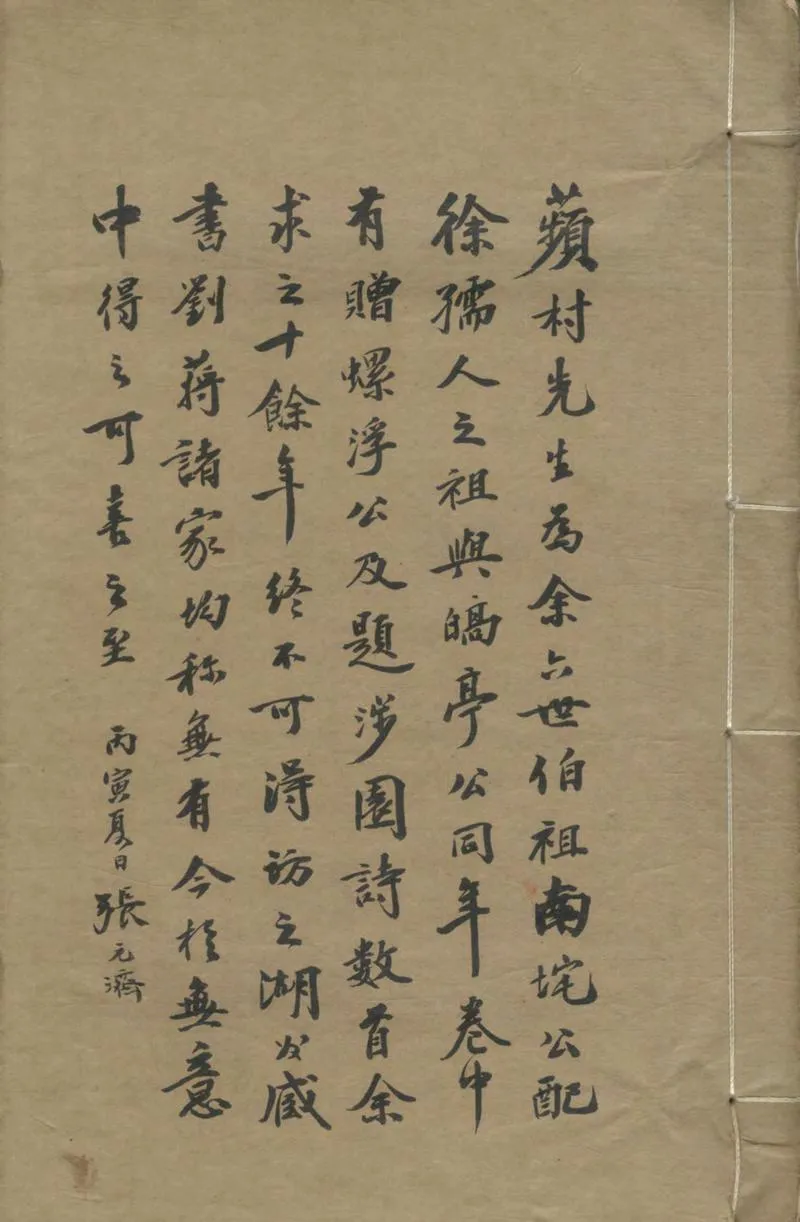 蘋村先生為余六世伯祖南垞公配
徐孺人之祖與皜亭公同年卷中
有贈螺浮公及題涉園詩數首余
求之十餘年終不可得訪之湖州藏
書劉蔣諸家均称無有今於無意
中得之可喜之至 丙寅夏日張元濟